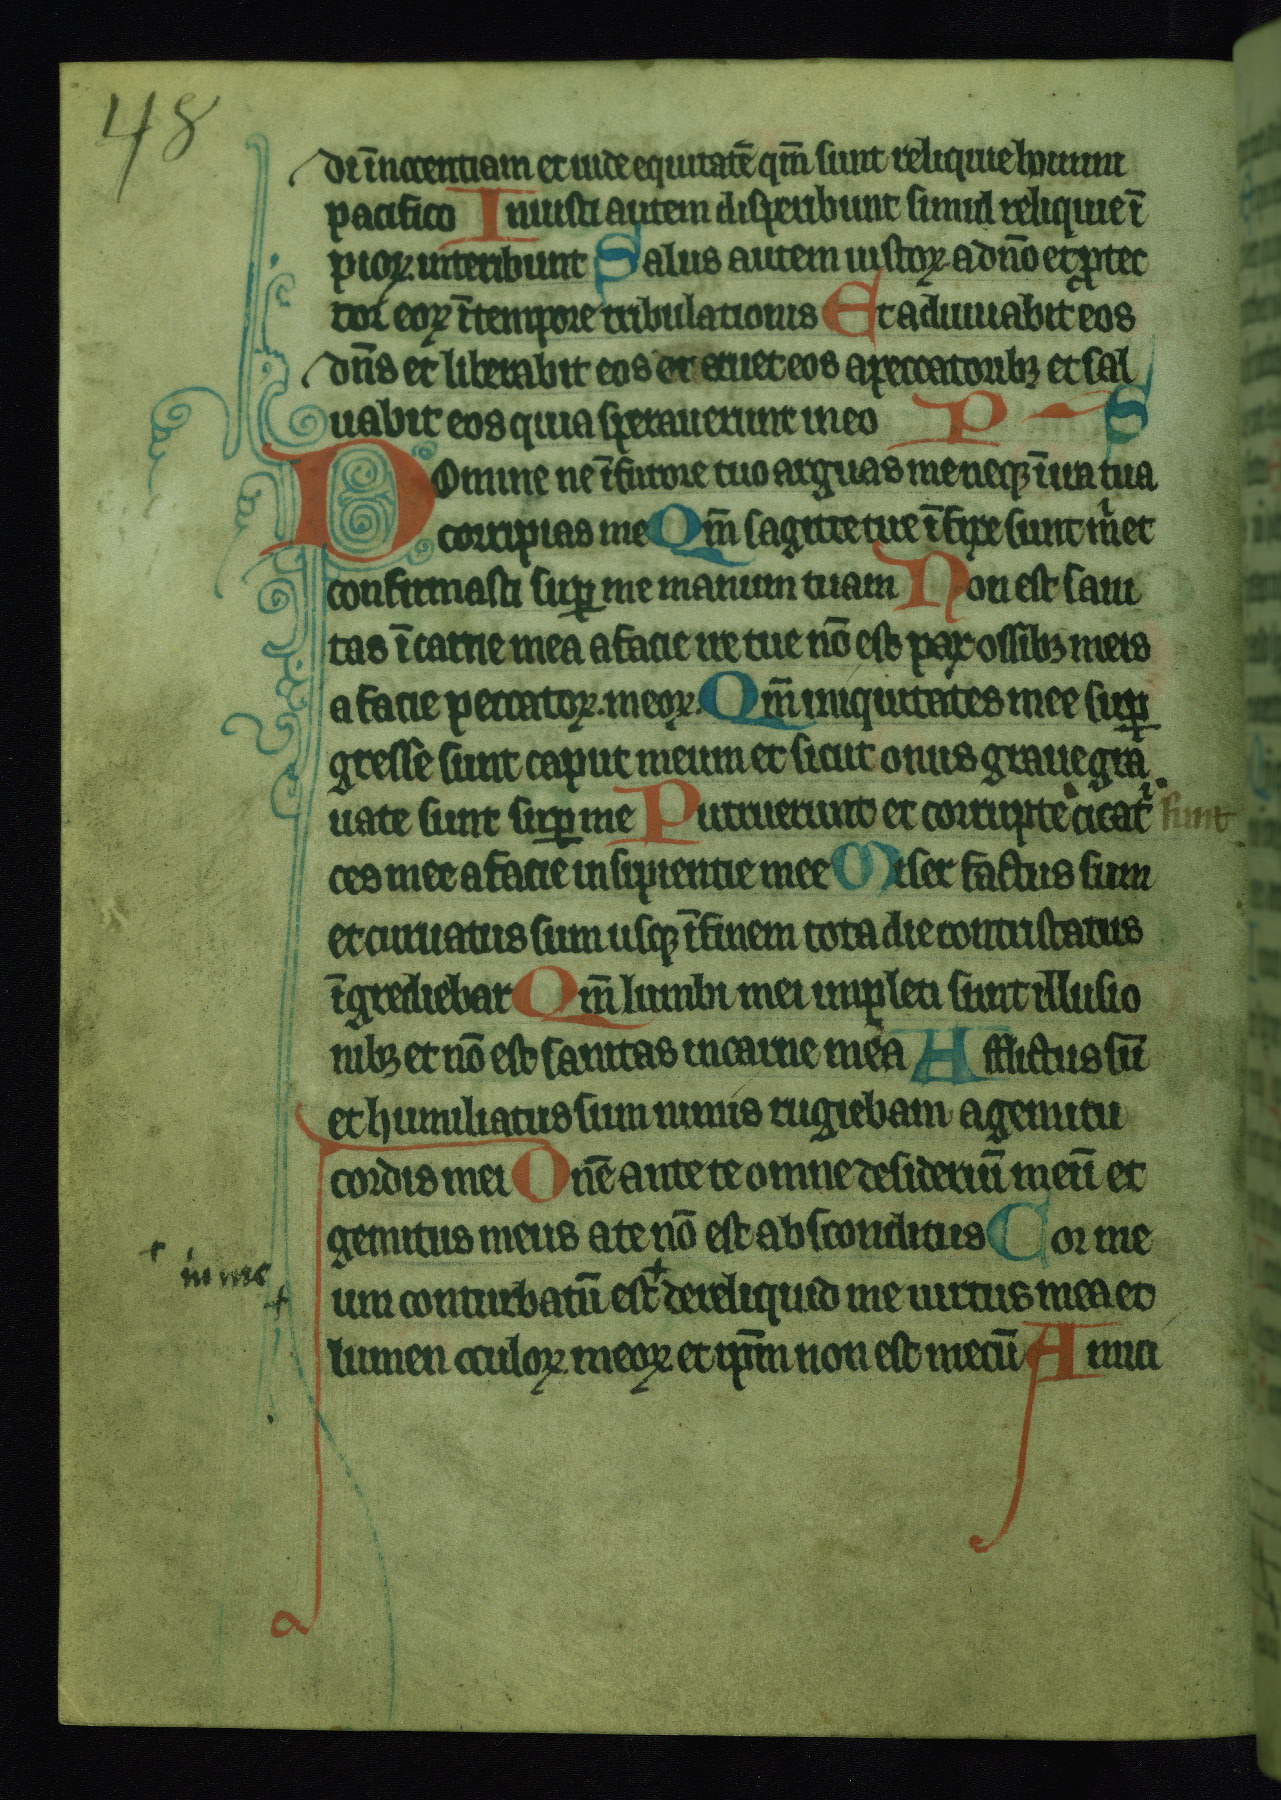 48
di īnocentiam et uide equitatē qm̄ sunt reliquie homini
pacifico Iniusti autem disperibunt simul reliquie ī
pioꝝ interibunt Salus autem iustoꝝ a dn̄o et ꝓtec
tor eoꝝ ī tempore tribulationis Et adiuuabit eos
dn̄s et liberabit eos et eruet eos a peccatoribꝫ et sal
uabit eos quia sperauerunt in eo P S
Domine ne ī furore tuo arguas me neqꝫ ī ira tua
corripias me Qm̄ sagitte tue īfixe sunt m̄ et
confirmasti suꝑ me manum tuam Non est sani
tas ī carne mea a facie ire tue nō est pax ossibꝫ meis
a facie peccatoꝝ meoꝝ Qm̄ iniquitates mee suꝑ
gresse sunt caput meum et sicut onus graue gra
uate sunt suꝑ me Putruerunt et corrupte cicatᷝ sunt
ces mee a facie insipientie mee Miser factus sum
et curuatus sum usqꝫ ī finem tota die contristatus
īgrediebar Qm̄ lumbi mei impleti sunt illusio
nibꝫ et nō est sanitas in carne mea Afflictus sū
et humiliatus sum nimis rugiebam a gemitu
cordis mei Dn̄e ante te omne desideriū meū et
gemitus meus a te nō est absconditus Cor me
+ in me
um conturbatū est + dereliquid me uirtus mea et
lumen oculoꝝ meoꝝ et ip̄m non est mecū Amici